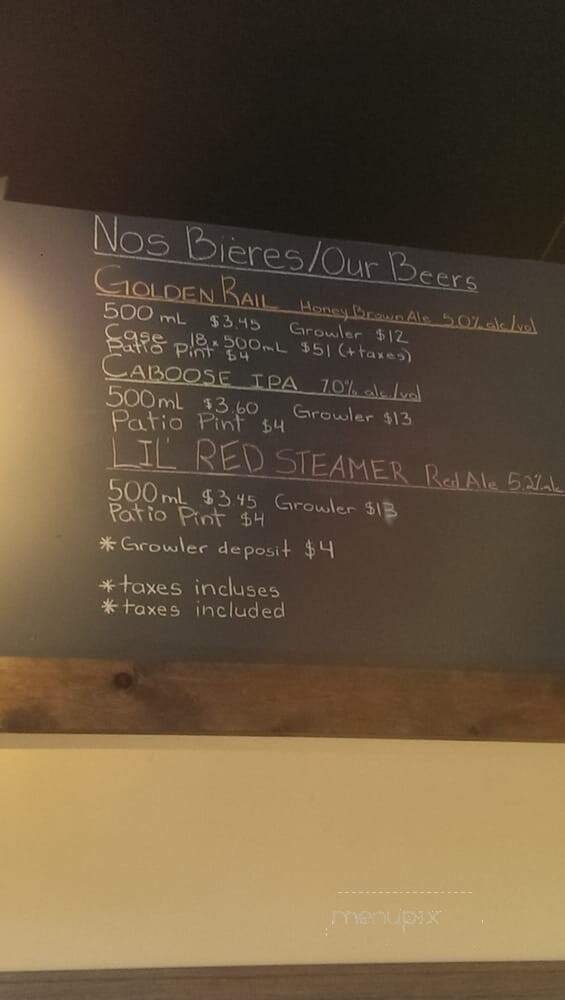 Nos Bières/Our Beers
GOLDEN RAIL Honey Brown Ale 5.0% alc/vol
500 mL $3.45 Growler $12
Case 18 x 500mL $51 (+taxes)
Patio Pint $4
CABOOSE IPA 7.0% alc/vol
500mL $3.60 Growler $13
Patio Pint $4
LIL' RED STEAMER Red Ale 5.2% alc
500mL $3.45 Growler $13
Patio Pint $4
*Growler deposit $4
*taxes incluses
*taxes included
menupix